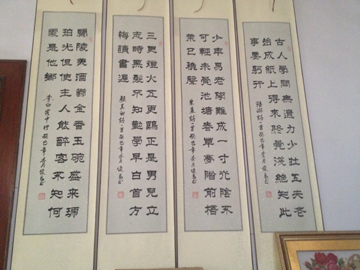 古人學問無遺力少壯工夫老
始成紙上得來終覺淺絕知此
事要躬行
少年易老學難成一寸光陰不
可輕未覺池塘春草夢階前梧
葉已秋聲
三更燈火五更鷄正是男兒立
志時黑髮不知勤學早白首方
悔讀書遲
蘭陵美酒鬱金香玉碗盛來琥
珀光但使主人能醉客不知何
處是他鄉 李白客中作